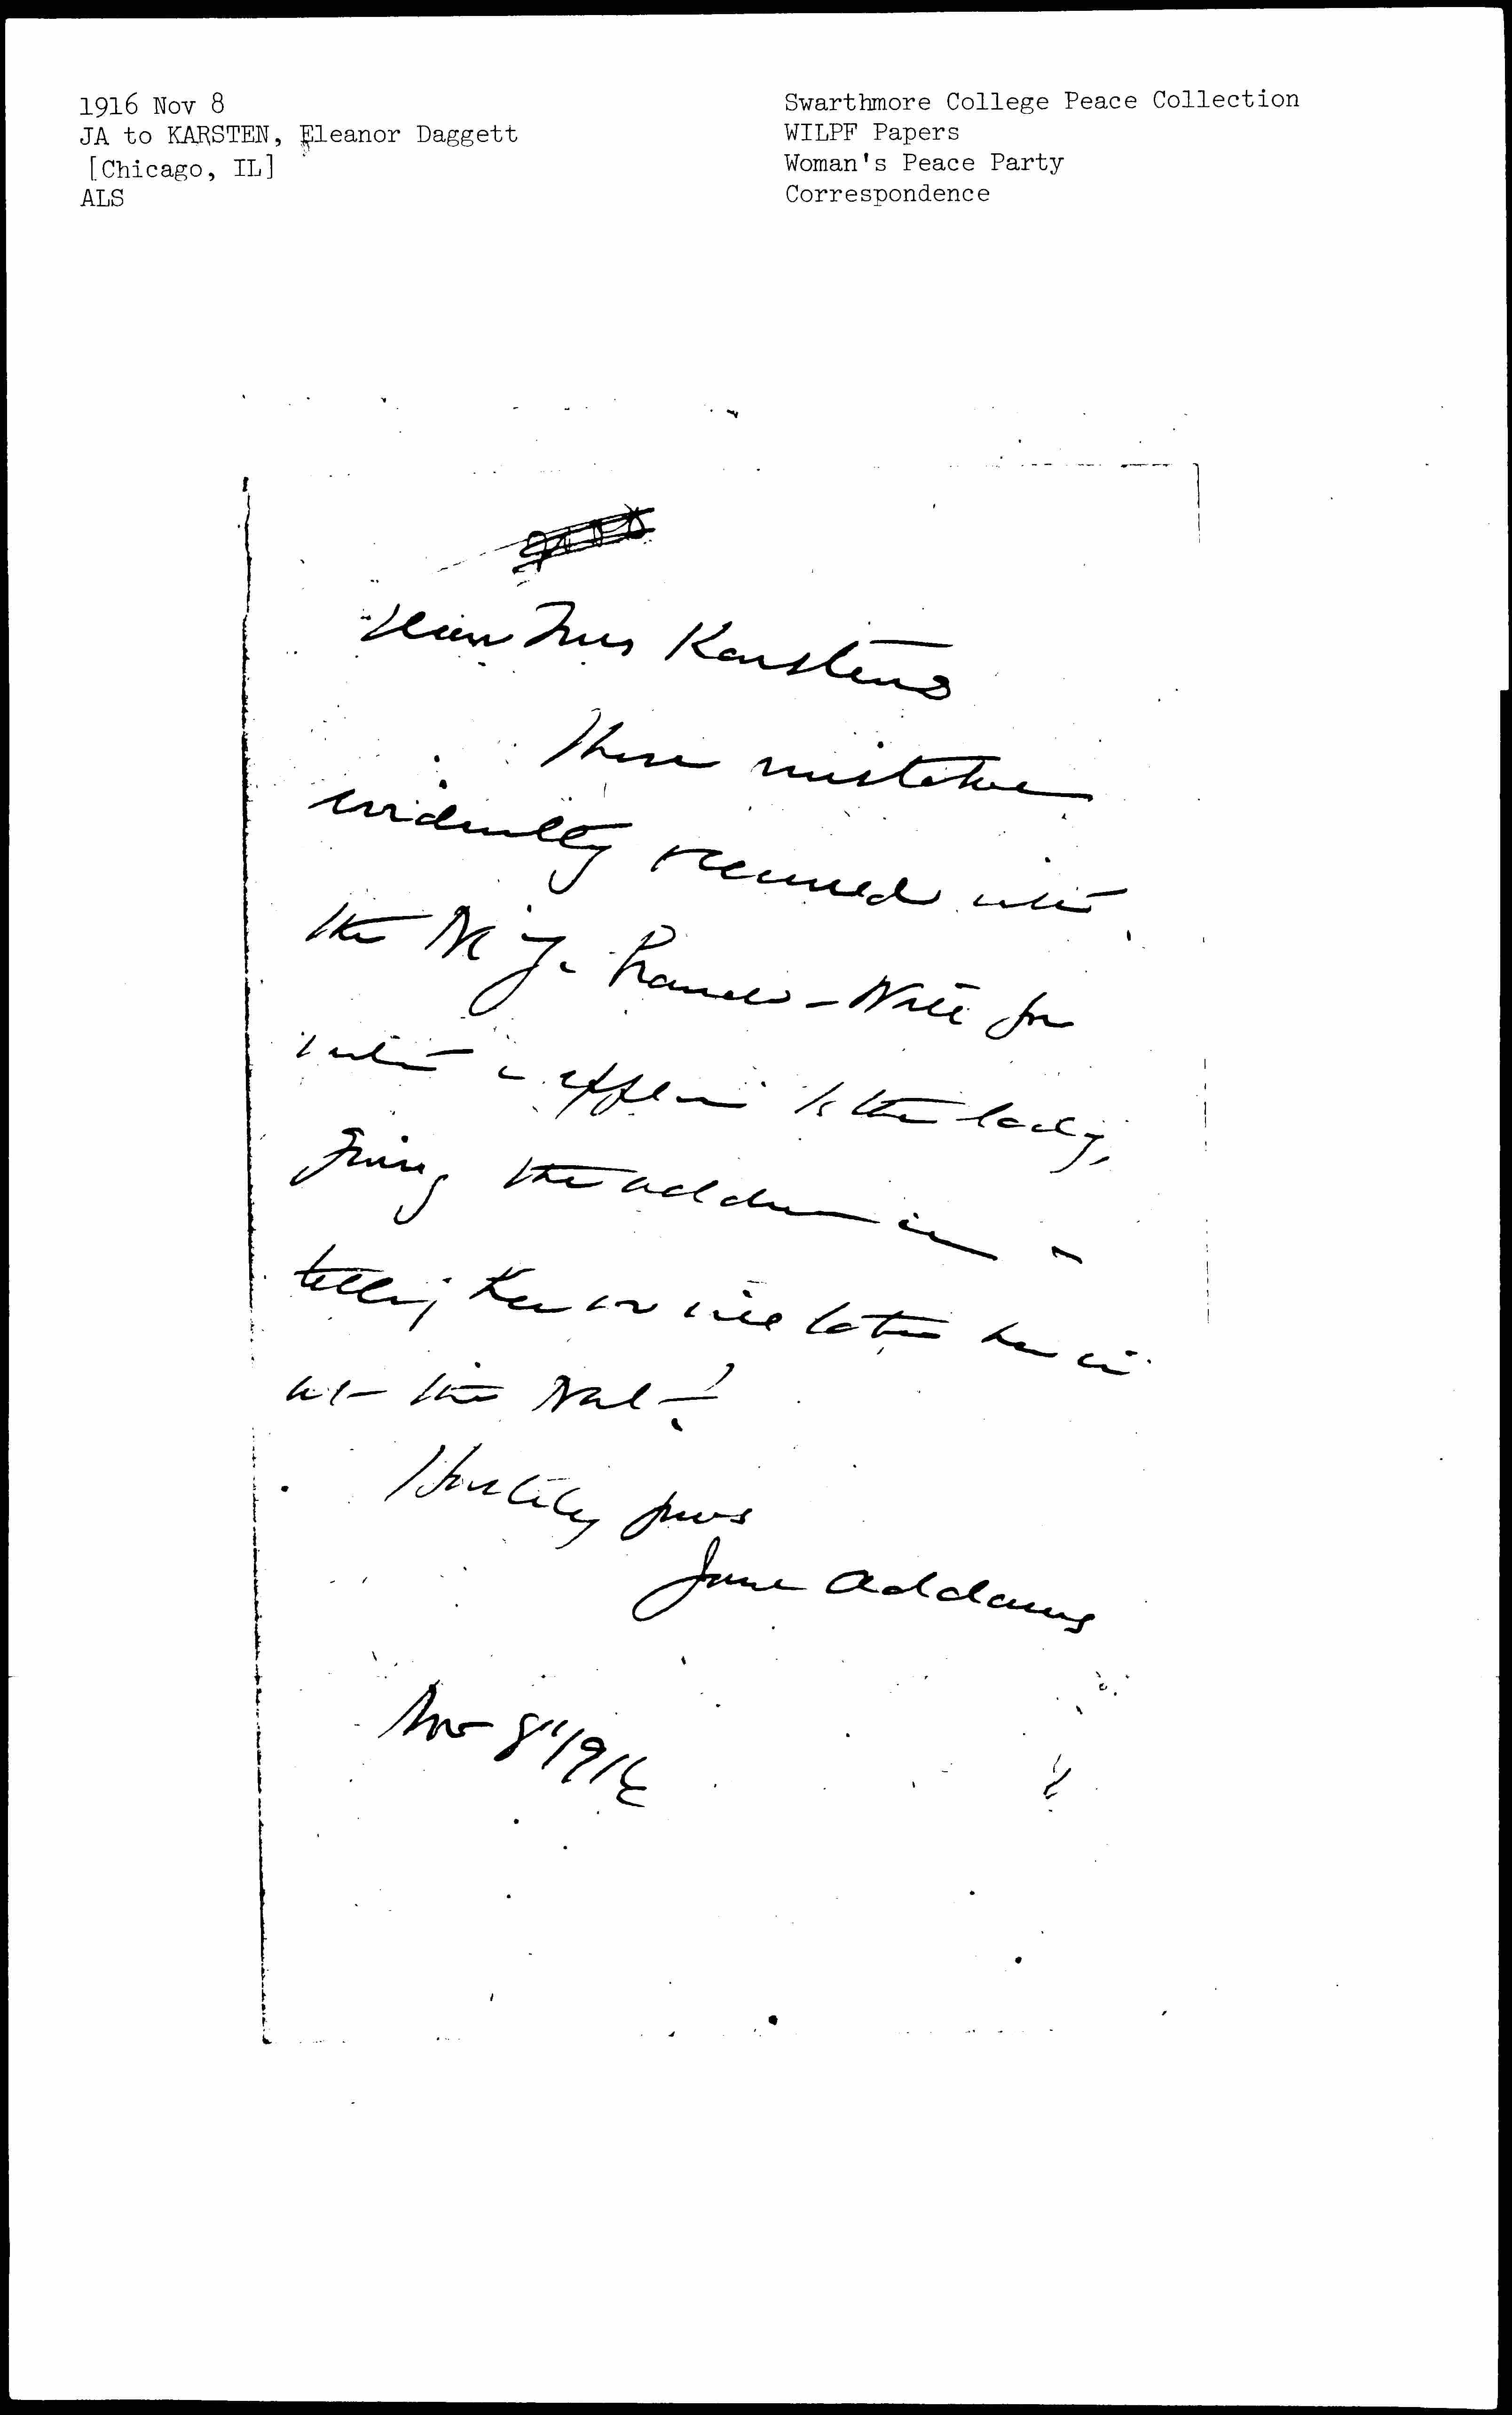 1916 Nov 8
JA to KARSTEN, Eleanor Daggett
[Chicago, IL]
ALS
Swarthmore College Peace Collection
WILPF Papers
Woman's Peace Party
Correspondence
Dear Mrs Karstens
These mistakes
evidently occurred with
the N. Y. Branch - Will you
write to the lady,
giving the address in
telling her we will her in
at the Nat-?
Hastily yours
Jane Addams
Nov 8" 1916